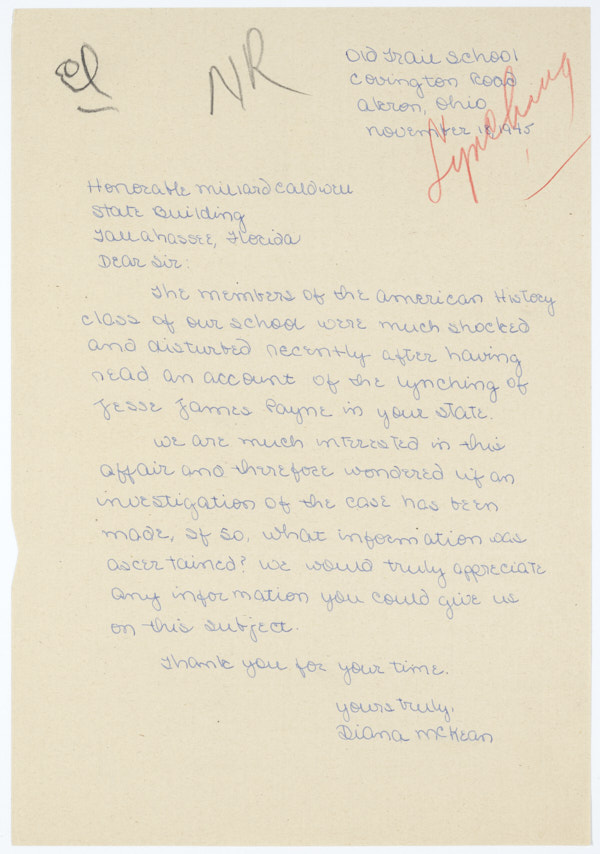 NR
Old Trail School
Covington Road
Akron, Ohio
November 18, 1945
Lynching
Honorable Millard Caldwell
State Building
Tallahassee, Florida
Dear Sir:
The members of the American History
class of our school were much shocked
and disturbed recently after having
read an account of the lynching of
Jesse James Payne in your state.
We are much interested in this
affair and therefore wondered if an
investigation of the case has been
made. If so, what information was
ascertained? We would truly appreciate
any information you could give us
on this subject.
Thank you for your time.
Yours truly,
Diana McKean